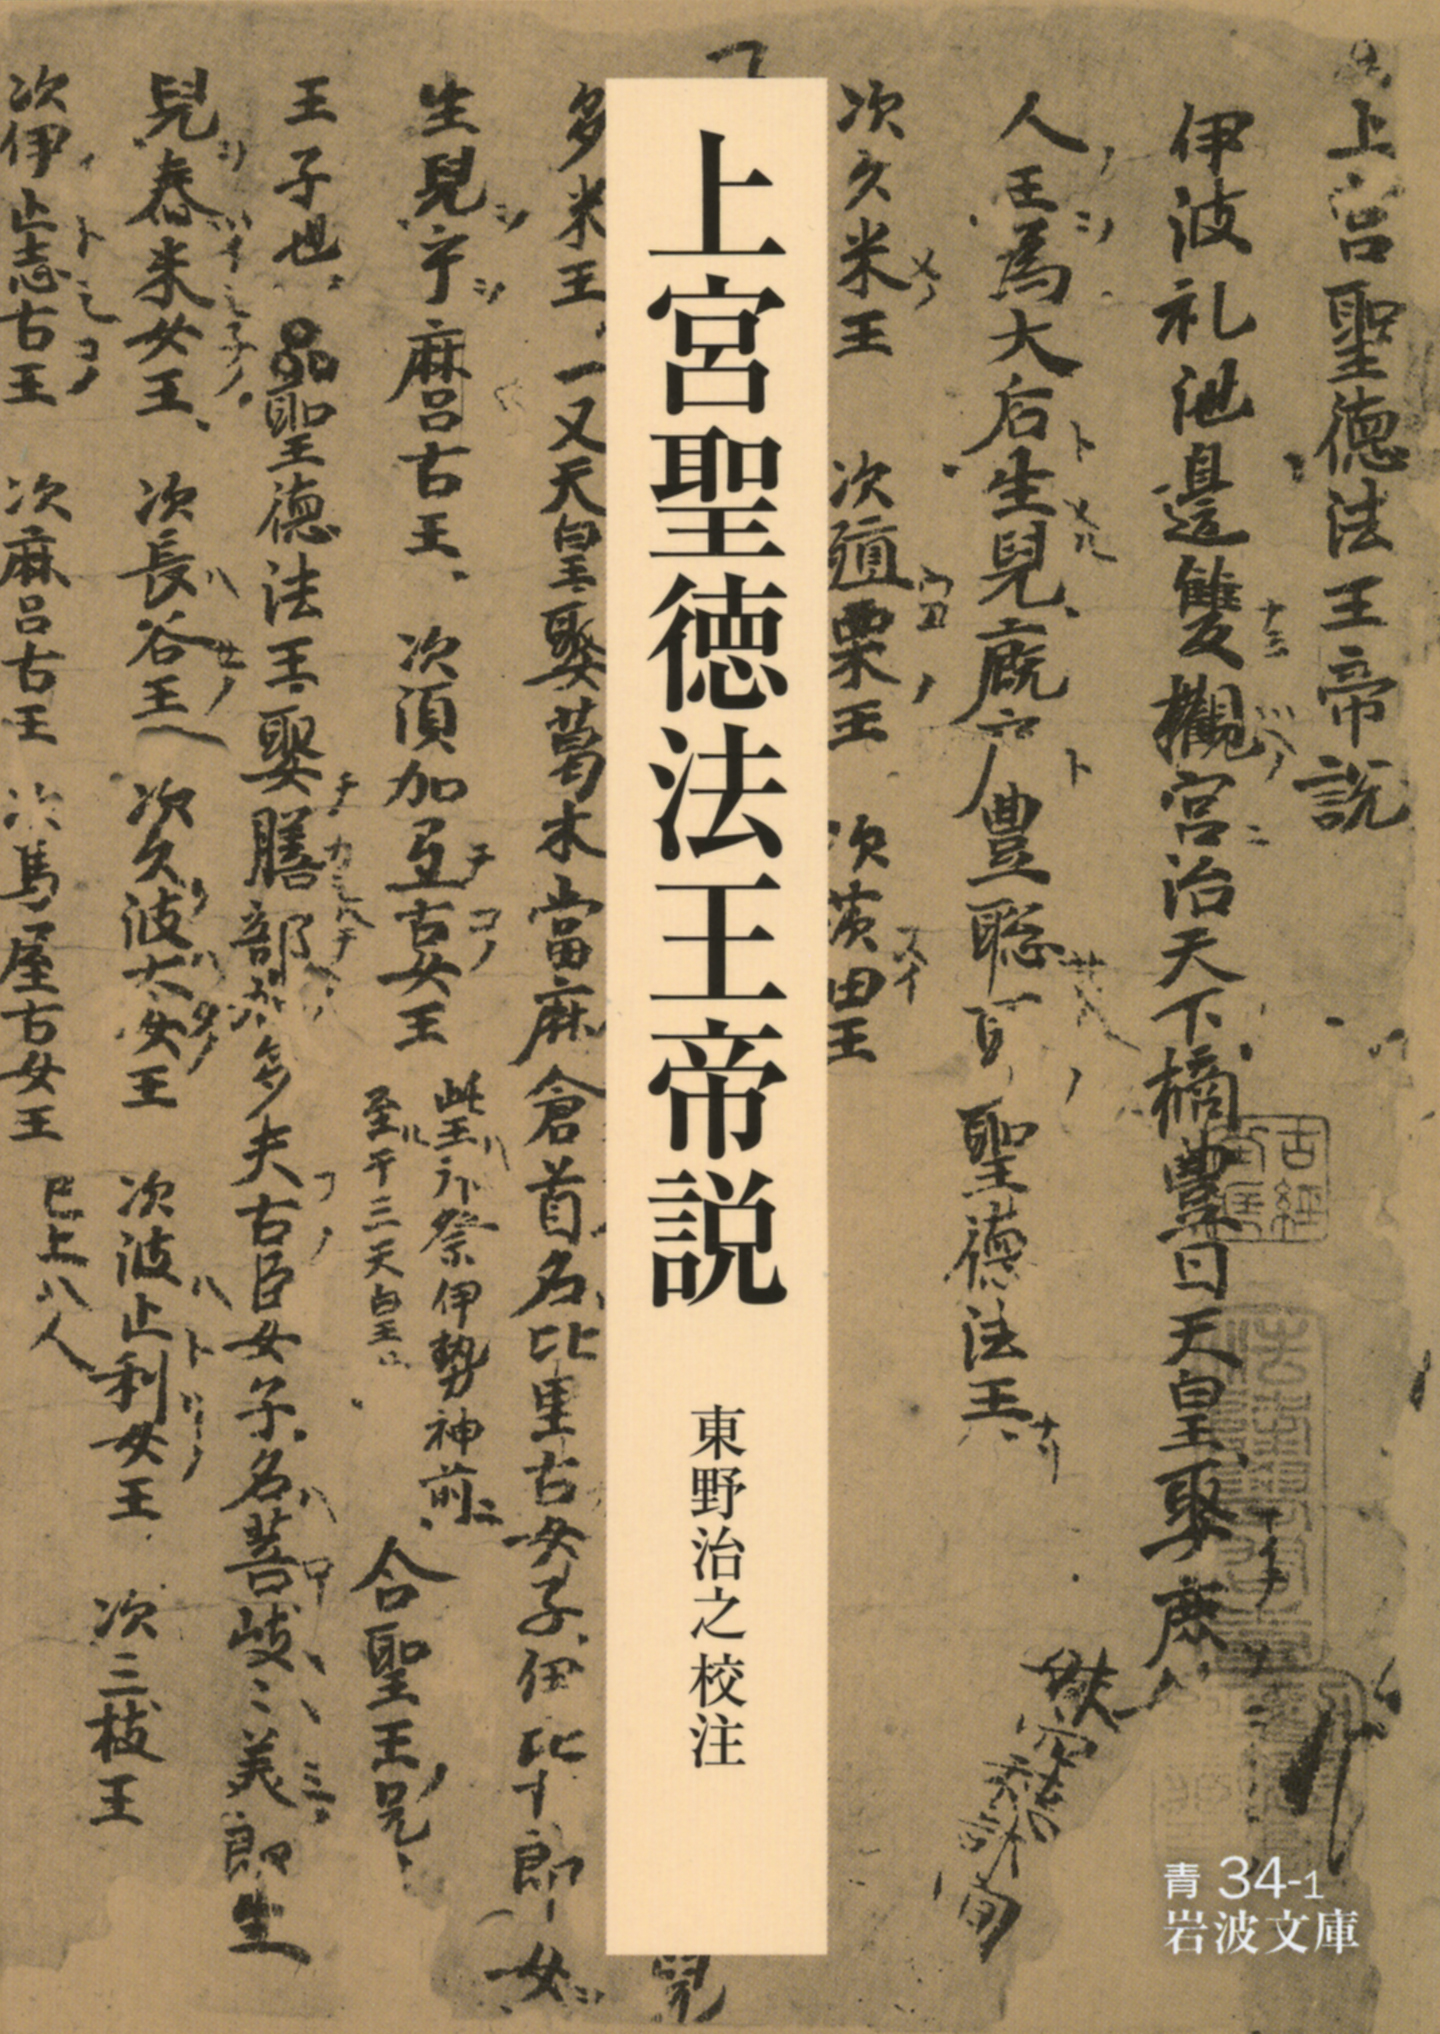 上宮聖徳法王帝説
伊波礼池邊雙欟宮治天下橘豊日天皇娶庶
人王為大后生兒廐戸豊聡耳聖徳法王
次久米王 次殖栗王 次茨田王
上宮聖德法王帝説
東野治之校注
多米王 一又天皇娶葛木當麻倉首名比里古女子伊比古郎女
生兒乎麻呂古王 次須加弖古女王
此王拝祭伊勢神前
至于三天皇
合聖王兄
王子也
聖徳法王娶膳部加多夫古臣女子名菩岐々美郎生
兒舂米女王 次長谷王 次久波太女王 次波止利女王 次三枝王
次伊止志古王 次麻呂古王 次馬屋古女王
已上八人
青 34-1
岩波文庫